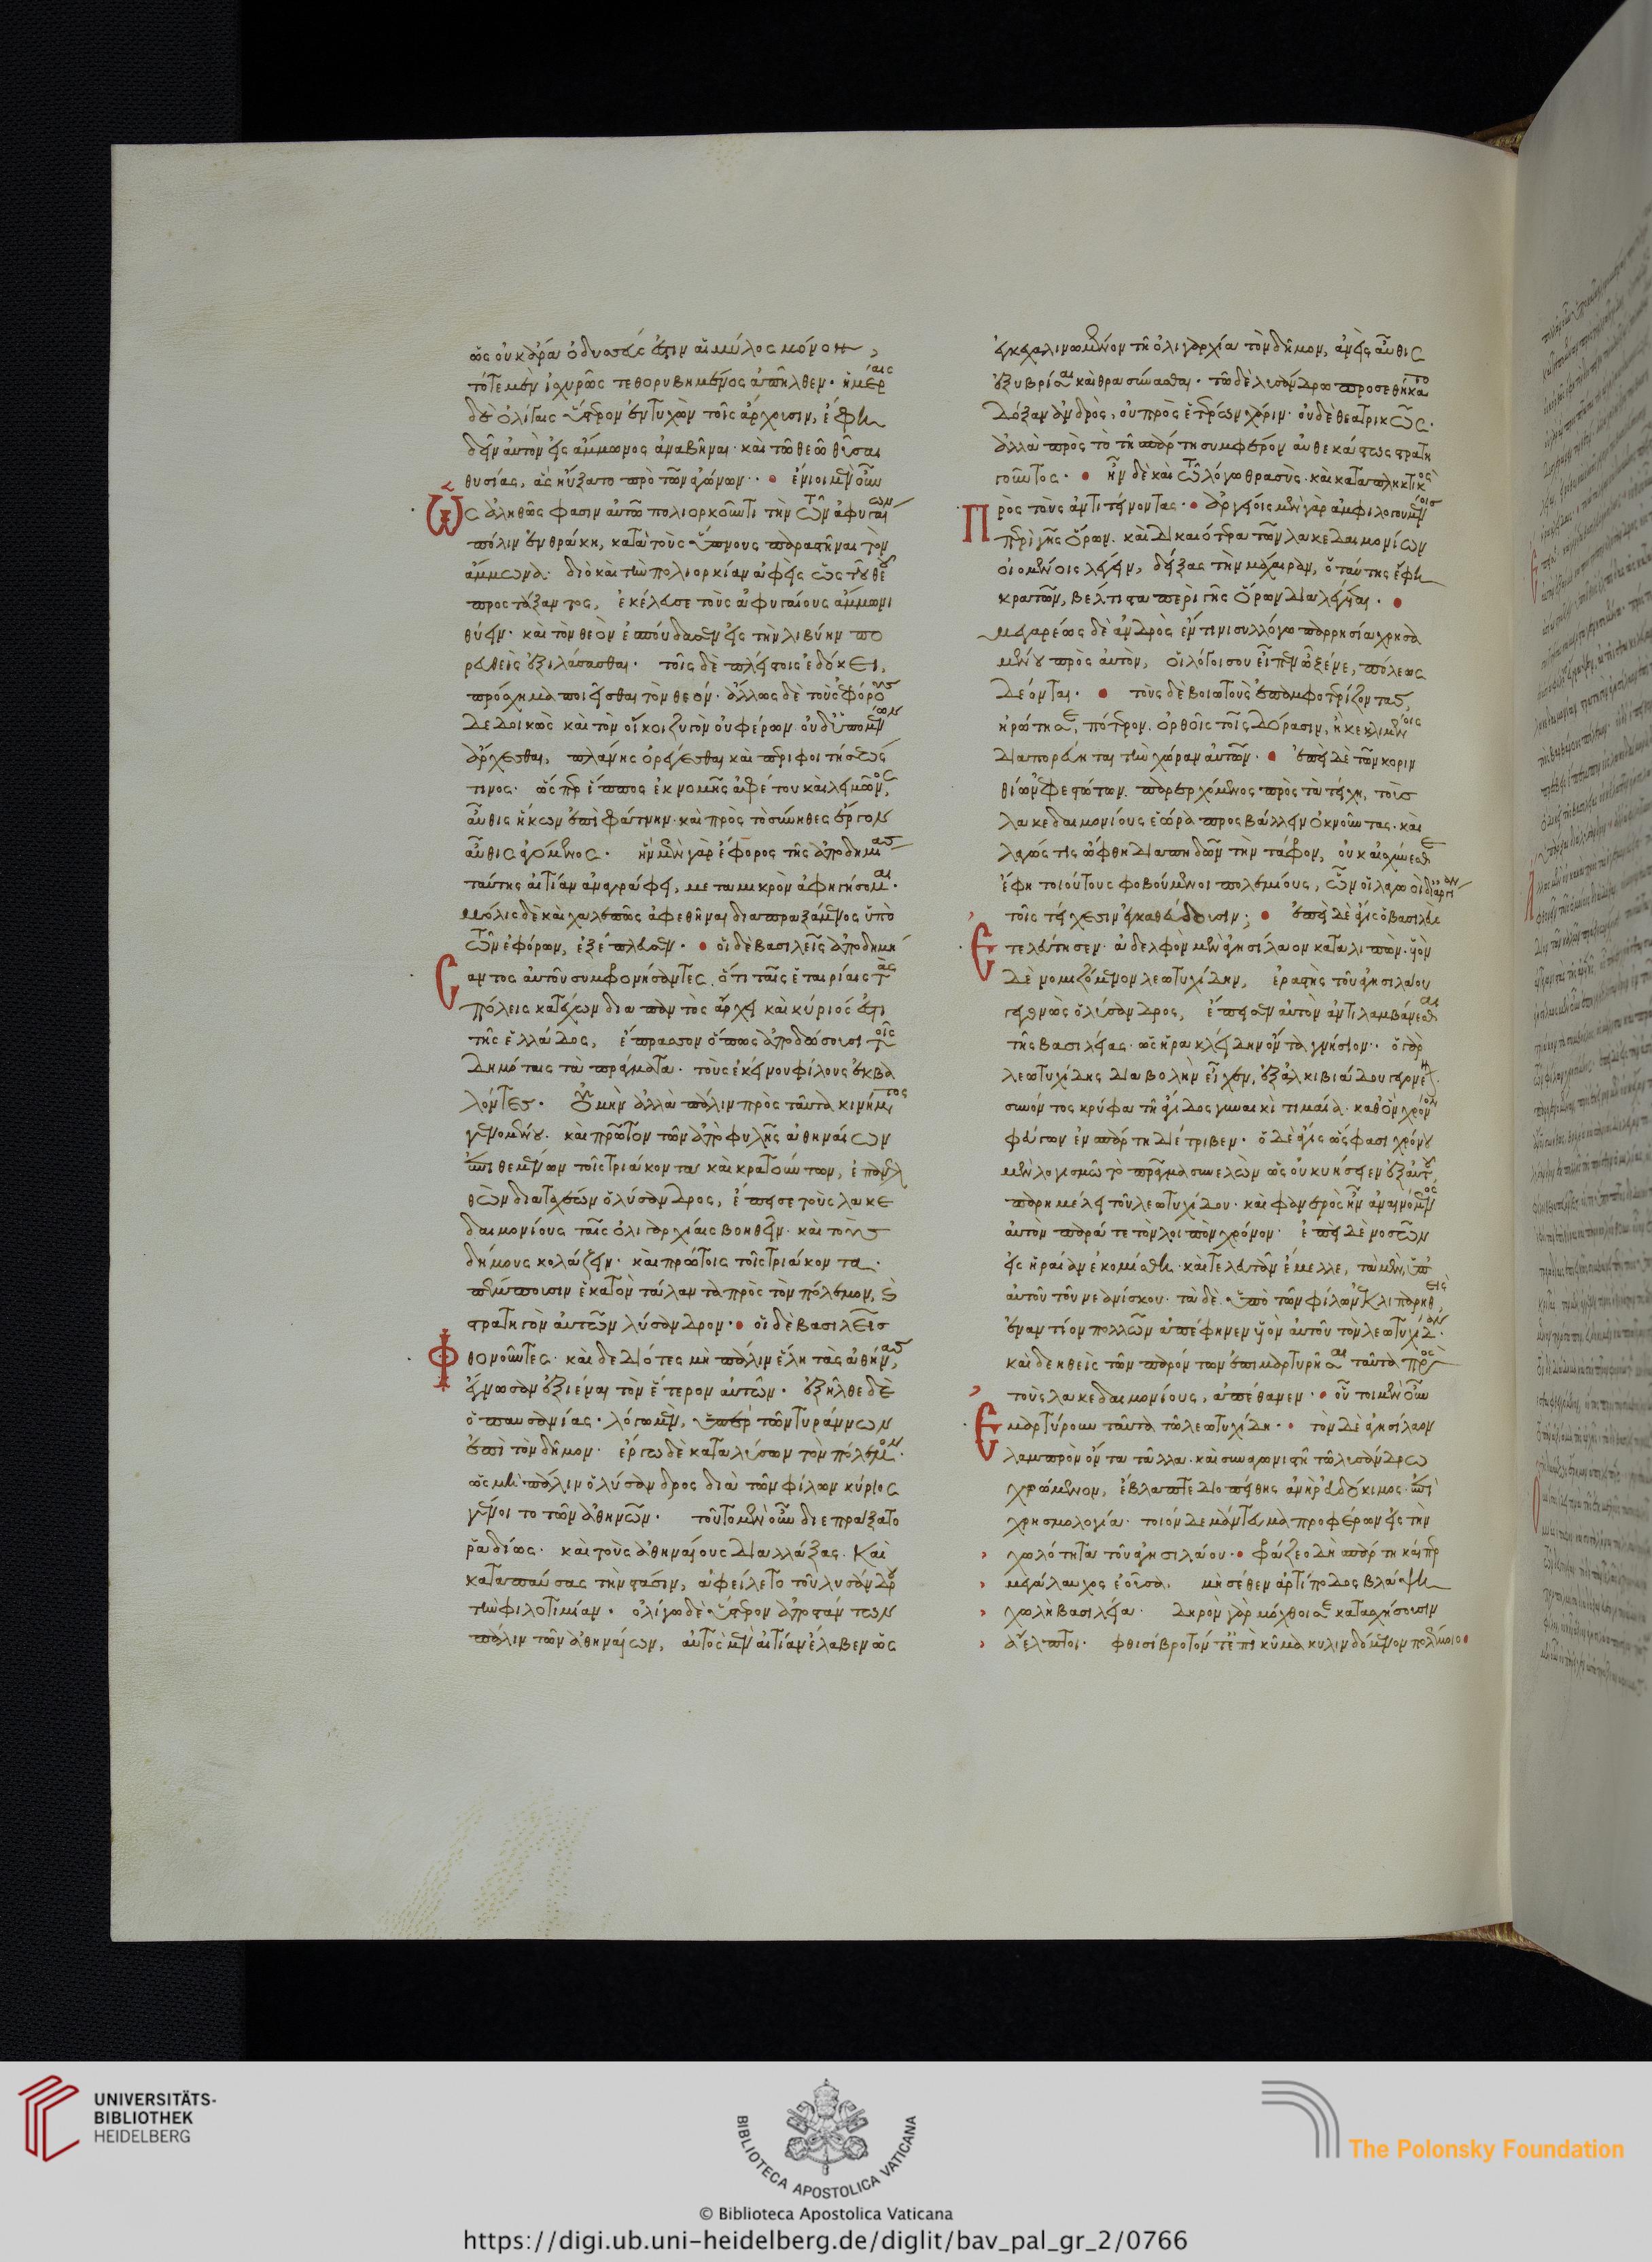 ὡς οὐκ ἄρ' ὀδυσσεύς ἐστιν αἱμύλος μόνος,
τότε μὲν ἰσχυρῶς τεθορυβημένος ἀπῆλθεν· ἡμέραις
δὲ ὀλίγαις ὕστερον ἐντυχὼν τοῖς ἄρχουσιν, ἔφη
δεῖν αὐτὸν εἰς ἄμμωνος ἀναβῆναι· καὶ τῶ θεῶ θῦσαι
θυσίας, ἃς ηὔξατο πρὸ τῶν ἀγώνων· ἔνιοι μὲν οὖν
ὡς ἀληθῶς φασιν αὐτῶ πολιορκοῦντι τὴν τῶν ἀφυταίων
πόλιν ἐν θράκη, κατὰ τοὺς ὕπνους παραστῆναι τὸν
ἄμμωνα· διὸ καὶ τὴν πολιορκίαν ἀφεὶς ὡς τοῦ θεοῦ
προστάξαντος, ἐκέλευσε τοὺς ἀφυταίους ἄμμωνι
θύειν· καὶ τὸν θεὸν ἐσπούδασεν εἰς τὴν λιβύην πο
ρευθεὶς ἐξιλάσασθαι· τοῖς δὲ πλείστοις ἐδόκει,
πρόσχημα ποιεῖσθαι τὸν θεόν· ἄλλως δὲ τοὺς ἐφόρους
δεδοικὼς καὶ τὸν οἴκοι ζυγὸν οὐ φέρων· οὐδ' ὑπομένων
ἄρχεσθαι, πλάνης ὀρέγεσθαι καὶ περιφοιτήσεώς
τινος· ὥσπερ ἵππος ἐκ νομῆς ἀφέτου καὶ λειμῶνος,
αὖθις ἥκων ἐπὶ φάτνην· καὶ πρὸς τὸ σύνηθες ἔργον
αὖθις ἀγόμενος· ἣν μὲν γὰρ ἔφορος τῆς ἀποδημίας
ταύτης αἰτίαν ἀναγράφει, μετὰ μικρὸν ἀφηγήσομαι·
μόλις δὲ καὶ χαλεπῶς ἀφεθῆναι διαπραξάμενος ὑπὸ
τῶν ἐφόρων, ἐξέπλευσεν· οἱ δὲ βασιλεῖς ἀποδημή
σαντος αὐτοῦ συμφρονήσαντες ὅτι ταῖς ἑταιρίαις τὰς
πόλεις κατέχων διὰ παντὸς ἄρχει καὶ κύριός ἐστι
τῆς ἑλλάδος, ἔπρασσον ὅπως ἀποδώσουσι τοῖς
δημόταις τὰ πράγματα· τοὺς ἐκείνου φίλους ἐκβα
λόντες· οὐ μὴν ἀλλὰ πάλιν πρὸς ταῦτα κινήματος
γενομένου· καὶ πρῶτον τῶν ἀπὸ φυλῆς ἀθηναίων
ἐπιθεμένων τοῖς τριάκοντα καὶ κρατούντων, ἐπανελ
θὼν διὰ ταχέων ὁ λύσανδρος, ἔπεισε τοὺς λακε
δαιμονίους ταῖς ὀλιγαρχίαις βοηθεῖν· καὶ τοὺς
δήμους κολάζειν· καὶ πρώτοις τοῖς τριάκοντα·
πέμπουσιν ἑκατὸν τάλαντα πρὸς τὸν πόλεμον, ϛ
στρατηγὸν αὐτῶν λύσανδρον· οἱ δὲ βασιλεῖς
φθονοῦντες· καὶ δεδιότες μὴ πάλιν ἕλη τὰς ἀθήνας,
ἔγνωσαν ἐξιέναι τὸν ἕτερον αὐτῶν· ἐξῆλθε δὲ
ὁ παυσανίας· λόγω μὲν, ὑπὲρ τῶν τυράννων
ἐπὶ τὸν δῆμον· ἔργω δὲ καταλύσων τὸν πόλεμον·
ὡς μὴ πάλιν ὁ λύσανδρος διὰ τῶν φίλων κύριος
γένοιτο τῶν ἀθηνῶν· τοῦτο μὲν οὖν διεπράξατο
ῥαδίως· καὶ τοὺς ἀθηναίους διαλλάξας· καὶ
καταπαύσας τὴν στάσιν, ἀφείλετο τοῦ λυσάνδρου
τὴν φιλοτιμίαν· ὀλίγω δὲ ὕστερον ἀποστάντων
πάλιν τῶν ἀθηναίων, αὐτὸς μὲν αἰτίαν ἔλαβεν ὡς
ἐγκεχαλινωμένον τῆ ὀλιγαρχία τὸν δῆμον, ἀνεὶς αὖθις
ἐξυβρίσαι καὶ θρασύνασθαι· τῶ δὲ λυσάνδρω προσεθήκατο
δόξαν ἀνδρὸς, οὐ πρὸς ἑτέρων χάριν· οὐδὲ θεατρικῶς·
ἀλλὰ πρὸς τὸ τῆ σπάρτη συμφέρον αὐθεκάστως στρατη
γοῦντος· ἦν δὲ καὶ τῶ λόγω θρασὺς· καὶ καταπληκτικὸς
πρὸς τοὺς ἀντιτείνοντας· ἀργείοις μὲν γὰρ ἀμφιλογουμένοις
περὶ γῆς ὅρων· καὶ δικαιότερα τῶν λακεδαιμονίων
οἰομένοις λέγειν, δείξας τὴν μάχαιραν, ὁ ταύτης ἔφη
κρατῶν, βέλτιστα περὶ γῆς ὅρων διαλέγεται·
μεγαρέως δὲ ἀνδρὸς ἐν τινι συλλόγω παρρησία χρησα
μένου πρὸς αὐτὸν, οἱ λόγοι σου εἶπεν ὦ ξένε, πόλεως
δέονται· τοὺς δὲ βοιωτοὺς ἐπαμφοτερίζοντας,
ἠρώτησε, πότερον· ὀρθοῖς τοῖς δόρασιν, ἢ κεκλιμένοις
διαπορεύηται τὴν χώραν αὐτῶν· ἐπεὶ δὲ τῶν κοριν
θίων ἀφεστώτων· παρερχόμενος πρὸς τὰ τείχη, τοὺς
λακεδαιμονίους ἑώρα προσβάλλειν ὀκνοῦντας· καὶ
λαγώς τις ὤφθη διαπηδῶν τὴν τάφρον, οὐκ αἰσχύνεσθε
ἔφη τοιούτους φοβούμενοι πολεμίους, ὧν οἱ λαγωοὶ δι' ἀργίαν
τοῖς τείχεσιν ἐγκαθεύδουσιν; ἐπεὶ δὲ ἆγις ὁ βασιλεὺς
ἐτελεύτησεν· ἀδελφὸν μὲν ἀγησίλαον καταλιπὼν· υἱὸν
δὲ νομιζόμενον λεωτυχίδην, ἐραστὴς τοῦ ἀγησιλάου
γεγονὼς ὁ λύσανδρος, ἔπεισεν αὐτὸν ἀντιλαμβάνεσθαι
τῆς βασιλείας· ὡς ἡρακλείδην ὄντα γνήσιον· ὁ γὰρ
λεωτυχίδης διαβολὴν εἶχεν, ἐξ ἀλκιβιάδου γεγονέναι·
συνόντος κρύφα τῆ ἄγιδος γυναικὶ τιμαία· καθ' ὃν χρόνον
φεύγων ἐν σπάρτη διέτριβεν· ὁ δὲ ἆγις ὥς φασι χρόνου
μὲν λογισμῶ τὸ πρᾶγμα συνελὼν ὡς οὐ κυήσειεν ἐξ αὐτοῦ,
παρημέλει τοῦ λεωτυχίδου· καὶ φανερὸς ἦν ἀναινόμενος
αὐτὸν παρά τε τὸν λοιπὸν χρόνον· ἐπεὶ δὲ νοσῶν
εἰς ἡραίαν ἐκομίσθη· καὶ τελευτᾶν ἔμελλε, τὰ μὲν, ὑπ'
αὐτοῦ τοῦ νεανίσκου· τὰ δὲ· ὑπὸ τῶν φίλων ἐκλιπαρηθεὶς,
ἐναντίον πολλῶν ἀπέφηνεν υἱὸν αὐτοῦ τὸν λεωτυχίδην·
καὶ δεηθεὶς τῶν παρόντων ἐπιμαρτυρῆσαι ταῦτα πρὸς
τοὺς λακεδαιμονίους, ἀπέθανεν· οὗτοι μὲν οὖν
ἐμαρτύρουν ταῦτα τῶ λεωτυχίδη· τὸν δὲ ἀγησίλαον
λαμπρὸν ὄντα τἄλλα· καὶ συναγωνιστῆ τῶ λυσάνδρω
χρώμενον, ἔβλαπτε διοπείθης ἀνὴρ εὐδόκιμος ἐπὶ
χρησμολογία· τοιόνδε μάντευμα προφέρων εἰς τὴν
χωλότητα τοῦ ἀγησιλάου· φράζεο δὴ σπάρτη καίπερ
μεγάλαυχος ἐοῦσα· μὴ σέθεν ἀρτίποδος βλάψη
χωλὴ βασιλεία· δηρὸν γὰρ μόχθοι σε κατασχήσουσιν
ἄελπτοι· φθισίβροτόν τ' ἐπὶ κῦμα κυλινδόμενον πολέμοιο
UNIVERSITÄTS-
BIBLIOTHEK
HEIDELBERG
BIBLIOTECA APOSTOLICA VATICANA
The Polonsky Foundation
© Biblioteca Apostolica Vaticana
https://digi.ub.uni-heidelberg.de/diglit/bav_pal_gr_2/0766